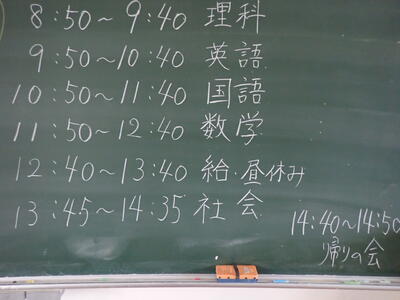 8:50～9:40 理科
9:50～10:40 英語
10:50～11:40 国語
11:50～12:40 数学
12:40～13:40 給・昼休み
13:45～14:35 社会
14:40～14:50
帰りの会